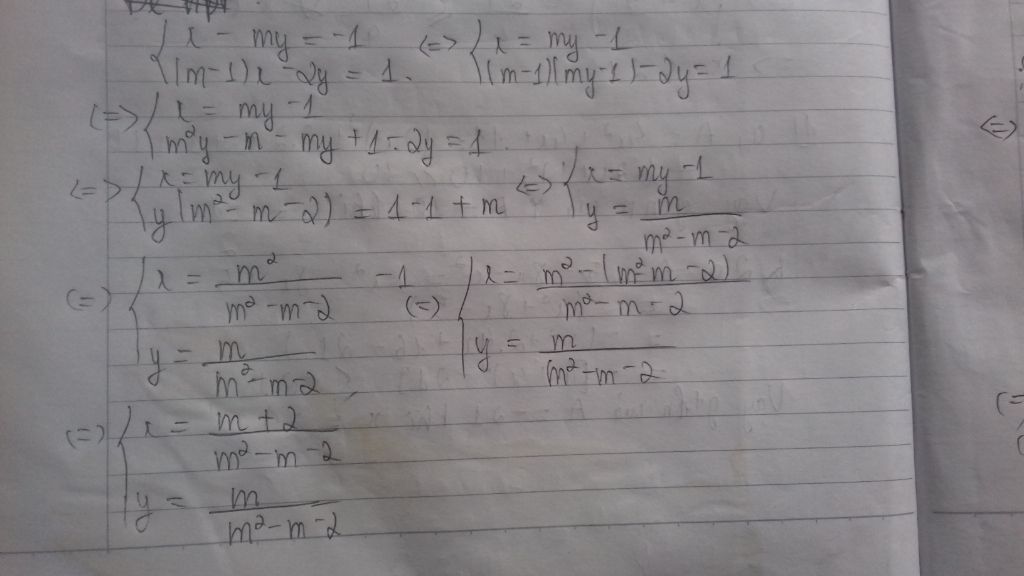 { x - my = -1 <=> { x = my -1
(m-1)x -2y = 1. (m-1)(my-1)-2y=1
<=> { x = my -1
m²y - m - my +1 - 2y = 1
<=> { x = my -1 <=> { x = my -1
y(m² - m -2) = 1-1 + m y = m / m²-m-2
(=) { x = m² / m²-m-2 -1 (=) { x = m² - (m² m -2) / m² - m -2
y = m / m²-m-2 y = m / m²-m-2
(=) { x = m+2 / m²-m-2
y = m / m²-m-2
<=>
(=